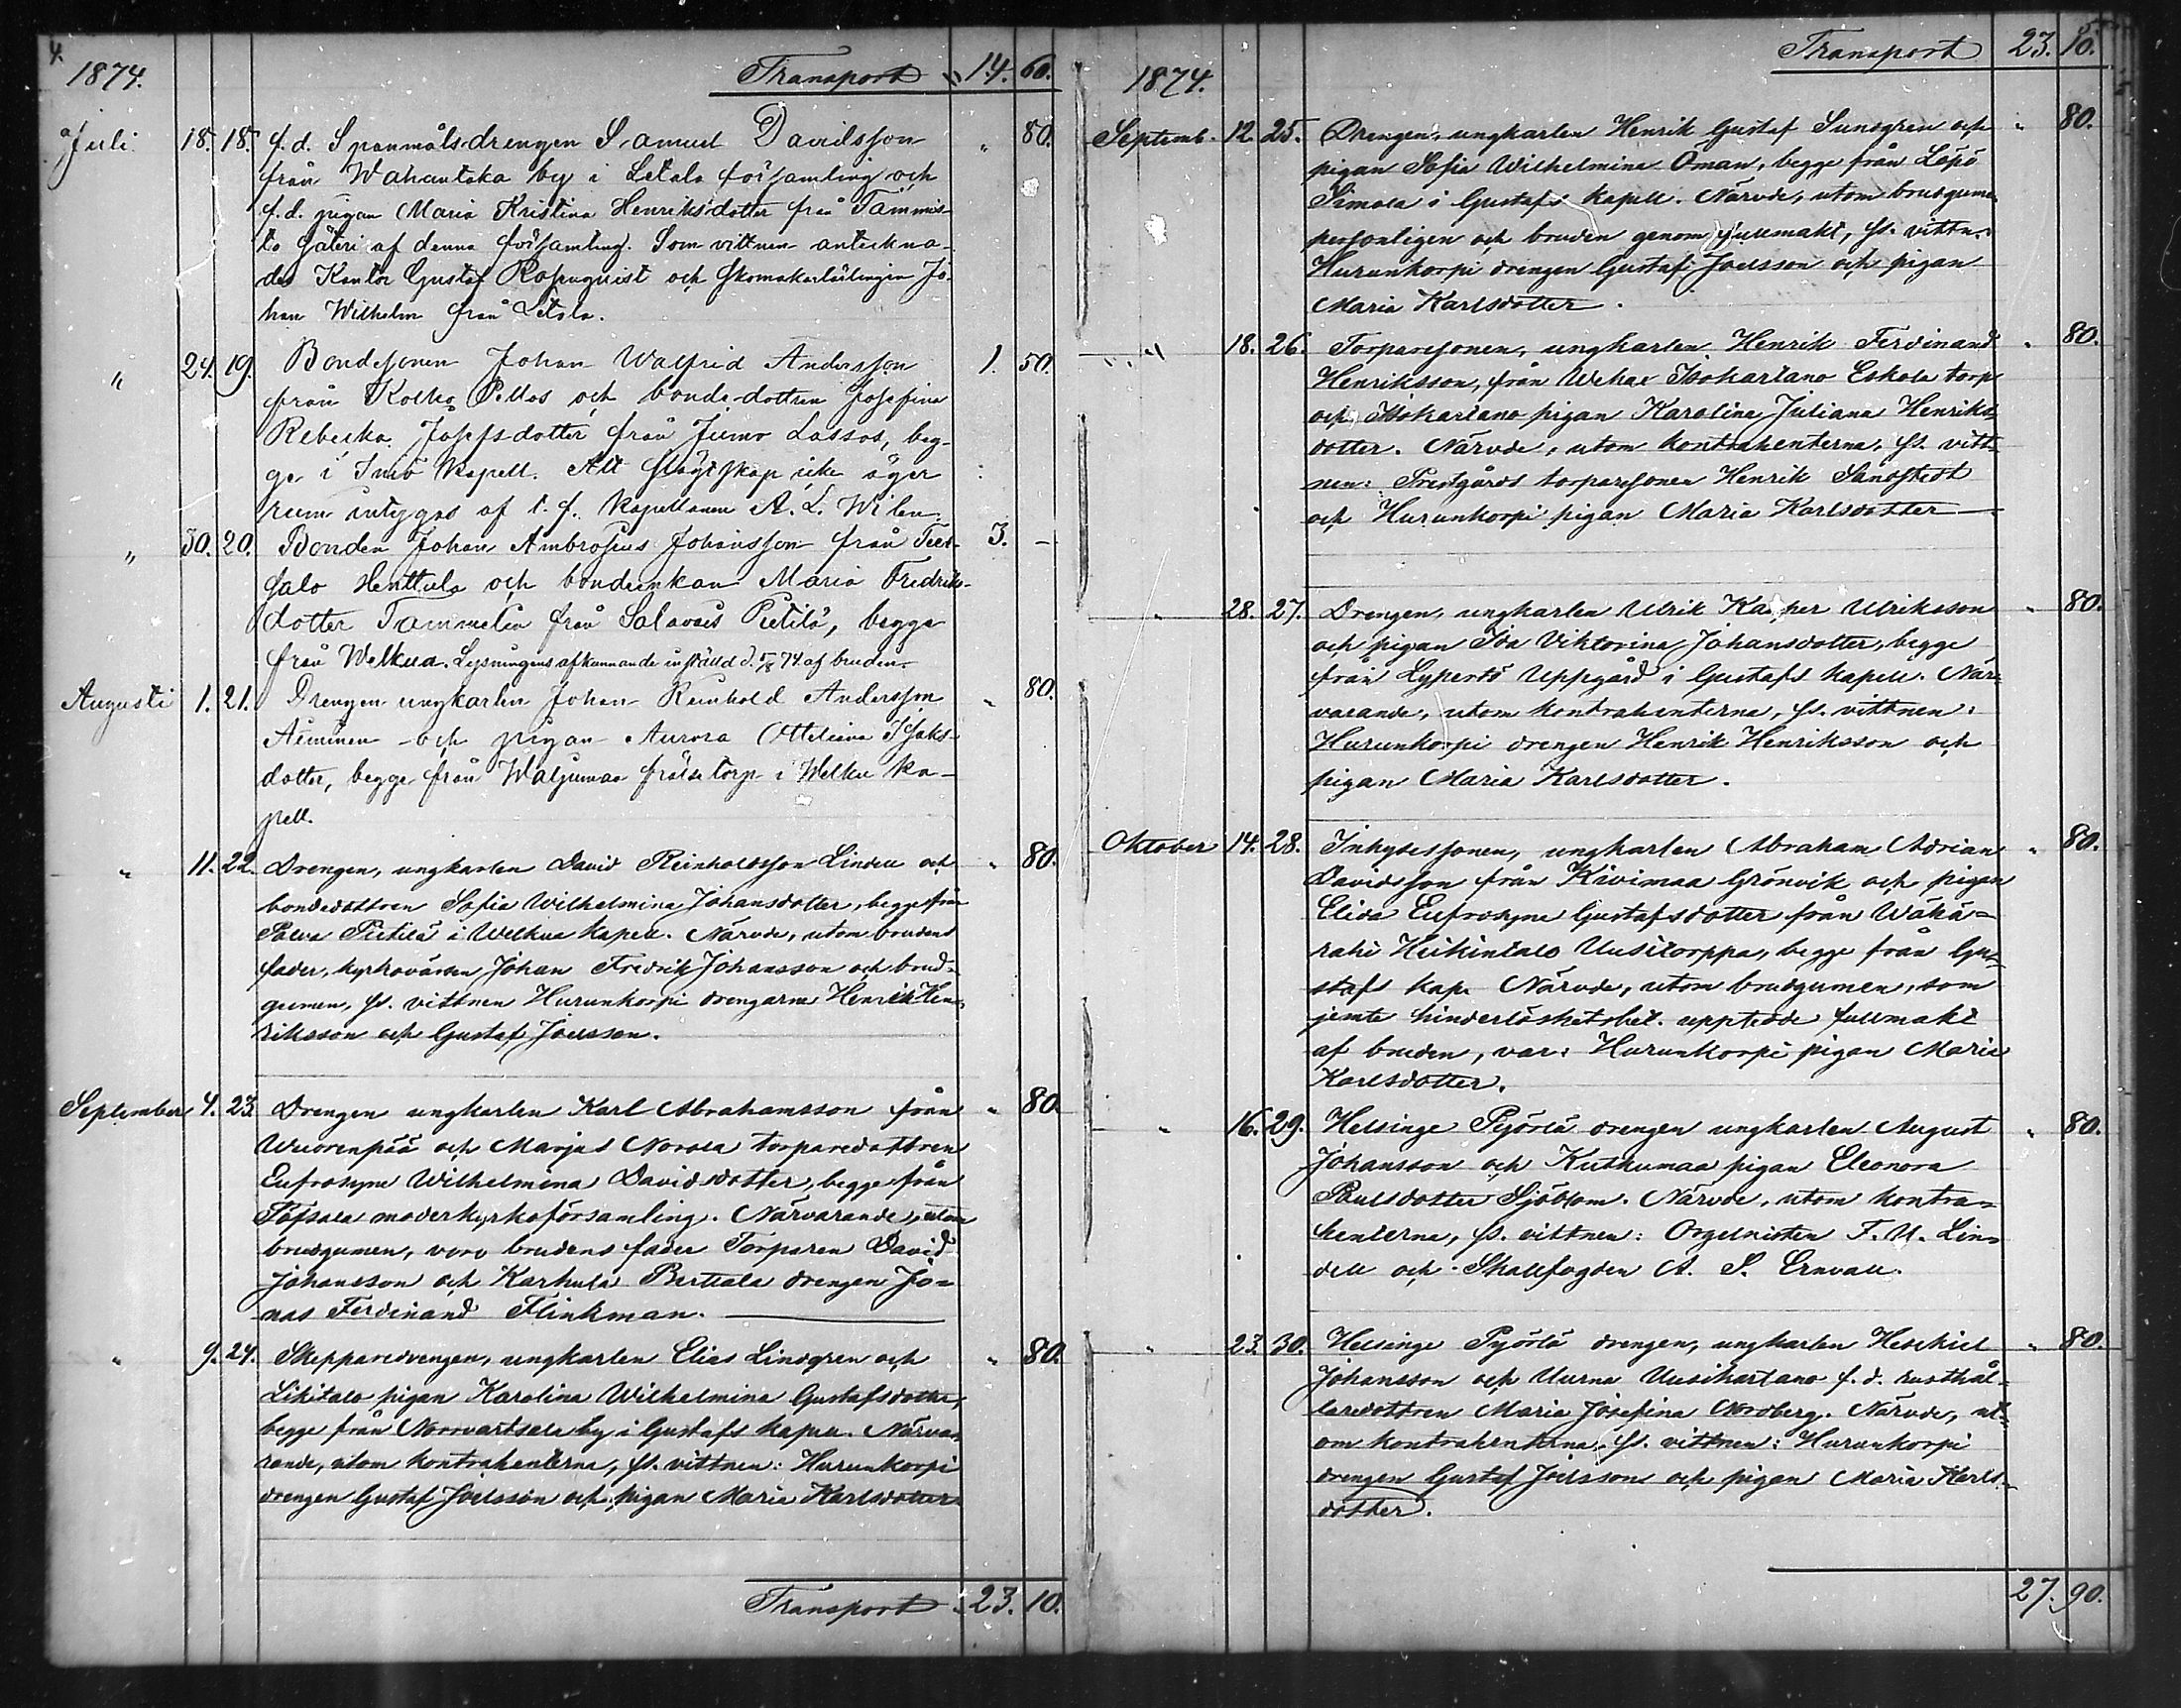 4.
1874. Transport " 14. 60.
Juli. 18. 18. f.d. Spanmålsdrengen Samuel Davidsson " 80.
från Wahantaka by i Letala församling och
f.d. pigan Maria Kristina Henriksdotter från Tammis-
to Säteri af denna församling. Som vittnen antekna-
des Kantor Gustaf Rosnqvist och Skomakarlärlingen Jo-
han Wilhelm från Letala.
" 24. 19. Bondesonen Johan Walfrid Andersson 1. 50.
från Kolko Pellos och bonde-dottren Josefina
Rebecka Josefsdotter från Jumo Lassos, beg-
ge i Iniö Kapell. Att skögtskap icke äger
rum intygas af t.f. Kapellanen A. L. Wilen.
" 30. 20. Bonden Johan Ambrosius Johansson från Teer- 3. –
salo Henttula och bondeenkan Maria Fredriks-
dotter Tammelin från Salavais Pietilä, begge
från Welkua. Lysningens afkunnande inställd d. 5/8 74 af bruden.
Augusti 1. 21. Drengen ungkarlen Johan Reinhold Andersson " 80.
Aiminen och pigan Aurora Ottiliana Isaks-
dotter, begge från Waljumaa frälsetorp i Welku ka-
pell.
" 11. 22. Drengen, ungkarlen David Reinholdsson Lindell och " 80.
bondedottren Sofia Wilhelmina Johansdotter, begge från
Palva Pietilä i Welkua Kapell. Närvde, utom brudens
fader, kyrkovärden Johan Fredrik Johansson och brud-
gumen, ss. vittnen Hurunkorpi drengarne Henrik Hen-
riksson och Gustaf Joelsson.
September 4. 23. Drengen ungkarlen Karl Abrahamsson från " 80.
Wuorenpää och Marjus Norola torparedottren
Eufrosyne Wilhelmina Davidsdotter, begge från
Töfsala moderkyrkoförsamling. Närvarande, utom
brudgumen, voro brudens fader Torparen David
Johansson och Karhula Berttala drengen Jo-
nas Ferdinand Flinkman.
" 9. 24. Skepparedrengen, ungkarlen Elias Lindgren och " 80.
Likitalo pigan Karolina Wilhelmina Gustafsdotter,
begge från Norrvartsala by i Gustafs kapell. Närva-
rande, utom kontrahenterna, ss. vittnen: Hurunkorpi
drengen Gustaf Joelsson och pigan Maria Karlsdotter
Transport " 23. 10.
5.
1874. Transport 23. 10.
Septemb. 12. 25. Drengen, ungkarlen Henrik Gustaf Sundgren och " 80.
pigan Sofia Wilhelmina Öman, begge från Löpö
Simala i Gustafs kapell. Närvde, utom brudgumen
personligen och bruden genom fullmakt, ss. vittn.
Hurunkorpi drengen Gustaf Joelsson och pigan
Maria Karlsdotter.
" 18. 26. Torparesonen, ungkarlen Henrik Ferdinand " 80.
Henriksson, från Wehas Isokartano Eskola torp
och Isokartano pigan Karolina Juliana Henriks-
dotter. Närvde, utom kontrahenterna, ss. vitt-
nen: Prestgårds torparesonen Henrik Sandstedt
och Hurunkorpi pigan Maria Karlsdotter
" 28. 27. Drengen, ungkarlen Ulrik Kasper Ulriksson " 80.
och pigan Ida Viktorina Johansdotter, begge
från Lypertö Uppgård i Gustafs kapell. När-
varande, utom kontrahenterna, ss. vittnen:
Hurunkorpi drengen Henrik Henriksson och
pigan Maria Karlsdotter.
Oktober 14. 28. Inhysessonen, ungkarlen Abraham Adrian " 80.
Davidsson från Kivimaa Grönvik och pigan
Elida Eufrosyne Gustafsdotter från Wähä-
rahi Heikintalo Uusitorppa, begge från Gu-
stafs kap. Närvde, utom brudgumen, som
jemte hinderlöshetsbet. uppteddé fullmakt
af bruden, var: Hurunkorpi pigan Maria
Karlsdotter.
" 16. 29. Helsinge Pyörlä drengen ungkarlen August " 80.
Johansson och Kuthumaa pigan Eleonora
Paulsdotter Sjöblom. Närvde, utom kontra-
henterna, ss. vittnen: Orgelnisten F. U. Lin-
dell och Skallfogden A. S. Ernvall.
" 23. 30. Helsinge Pyörlä drengen, ungkarlen Hesekiel " 80.
Johansson och Uurna Uusikartano f.d. rusthål-
laredottren Maria Josefina Nordberg. Närvde, ut-
om kontrahenterna, ss. vittnen: Hurunkorpi
drengen Gustaf Joelsson och pigan Maria Karls-
dotter.
27. 90.